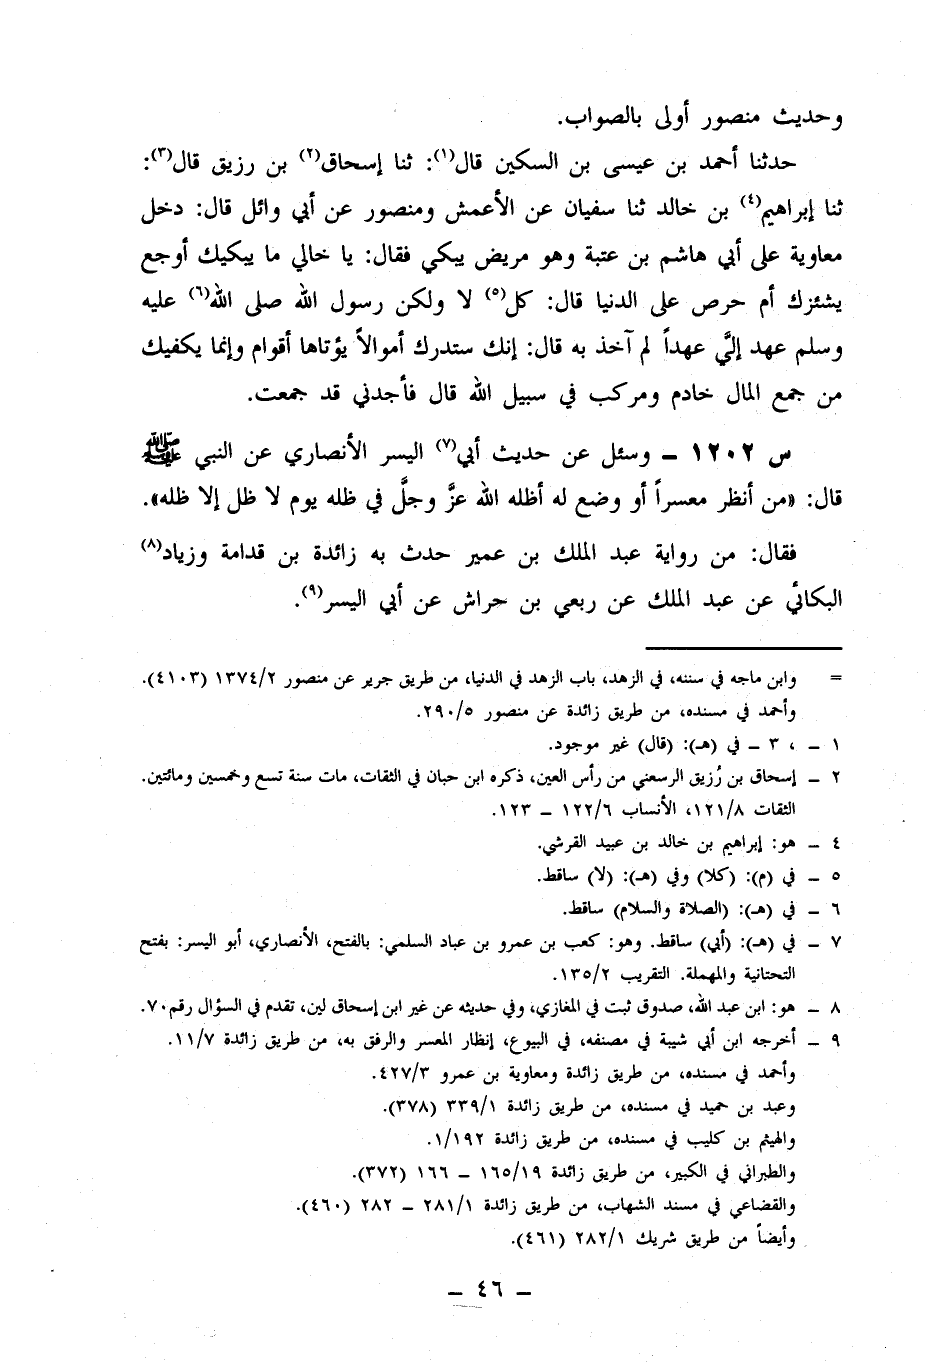 وحديث منصور أولى بالصواب.
حدثنا أحمد بن عيسى بن السكين قال(١): ثنا إسحاق(٢) بن رزيق قال(٣):
ثنا إبراهيم(٤) بن خالد ثنا سفيان عن الأعمش ومنصور عن أبي وائل قال: دخل
معاوية على أبي هاشم بن عتبة وهو مريض يبكي فقال: يا خالي ما يبكيك أوجع
يشئزك أم حرص على الدنيا قال: كل(٥) لا ولكن رسول الله صلى الله(٦) عليه
وسلم عهد إليَّ عهداً لم آخذ به قال: إنك ستدرك أموالاً يؤتاها أقوام وإنما يكفيك
من جمع المال خادم ومركب في سبيل الله قال فأجدني قد جمعت.
س ١٢٠٢ ـ وسئل عن حديث أبي(٧) اليسر الأنصاري عن النبي ﷺ
قال: «من أنظر معسراً أو وضع له أظله الله عزَّ وجلَّ في ظله يوم لا ظل إلا ظله».
فقال: من رواية عبد الملك بن عمير حدث به زائدة بن قدامة وزياد(٨)
البكائي عن عبد الملك عن ربعي بن حراش عن أبي اليسر(٩).
= وابن ماجه في سننه، في الزهد، باب الزهد في الدنيا، من طريق جرير عن منصور ١٣٧٤/٢ (٤١٠٣).
وأحمد في مسنده، من طريق زائدة عن منصور ٢٩٠/٥.
١ ـ ، ٣ ـ في (هـ): (قال) غير موجود.
٢ ـ إسحاق بن رُزيق الرسعني من رأس العين، ذكره ابن حبان في الثقات، مات سنة تسع وخمسين ومائتين.
الثقات ١٢١/٨، الأنساب ١٢٢/٦ ـ ١٢٣.
٤ ـ هو: إبراهيم بن خالد بن عبيد القرشي.
٥ ـ في (م): (كلا) وفي (هـ): (لا) ساقط.
٦ ـ في (هـ): (الصلاة والسلام) ساقط.
٧ ـ في (هـ): (أبي) ساقط. وهو: كعب بن عمرو بن عباد السلمي: بالفتح، الأنصاري، أبو اليسر: بفتح
التحتانية والمهملة. التقريب ١٣٥/٢.
٨ ـ هو: ابن عبد الله، صدوق ثبت في المغازي، وفي حديثه عن غير ابن إسحاق لين، تقدم في السؤال رقم ٧٠.
٩ ـ أخرجه ابن أبي شيبة في مصنفه، في البيوع، إنظار المعسر والرفق به، من طريق زائدة ١١/٧.
وأحمد في مسنده، من طريق زائدة ومعاوية بن عمرو ٤٢٧/٣.
وعبد بن حميد في مسنده، من طريق زائدة ٣٣٩/١ (٣٧٨).
والهيثم بن كليب في مسنده، من طريق زائدة ١/١٩٢.
والطبراني في الكبير، من طريق زائدة ١٦٥/١٩ ـ ١٦٦ (٣٧٢).
والقضاعي في مسند الشهاب، من طريق زائدة ٢٨١/١ ـ ٢٨٢ (٤٦٠).
وأيضاً من طريق شريك ٢٨٢/١ (٤٦١).
ـ ٤٦ ـ